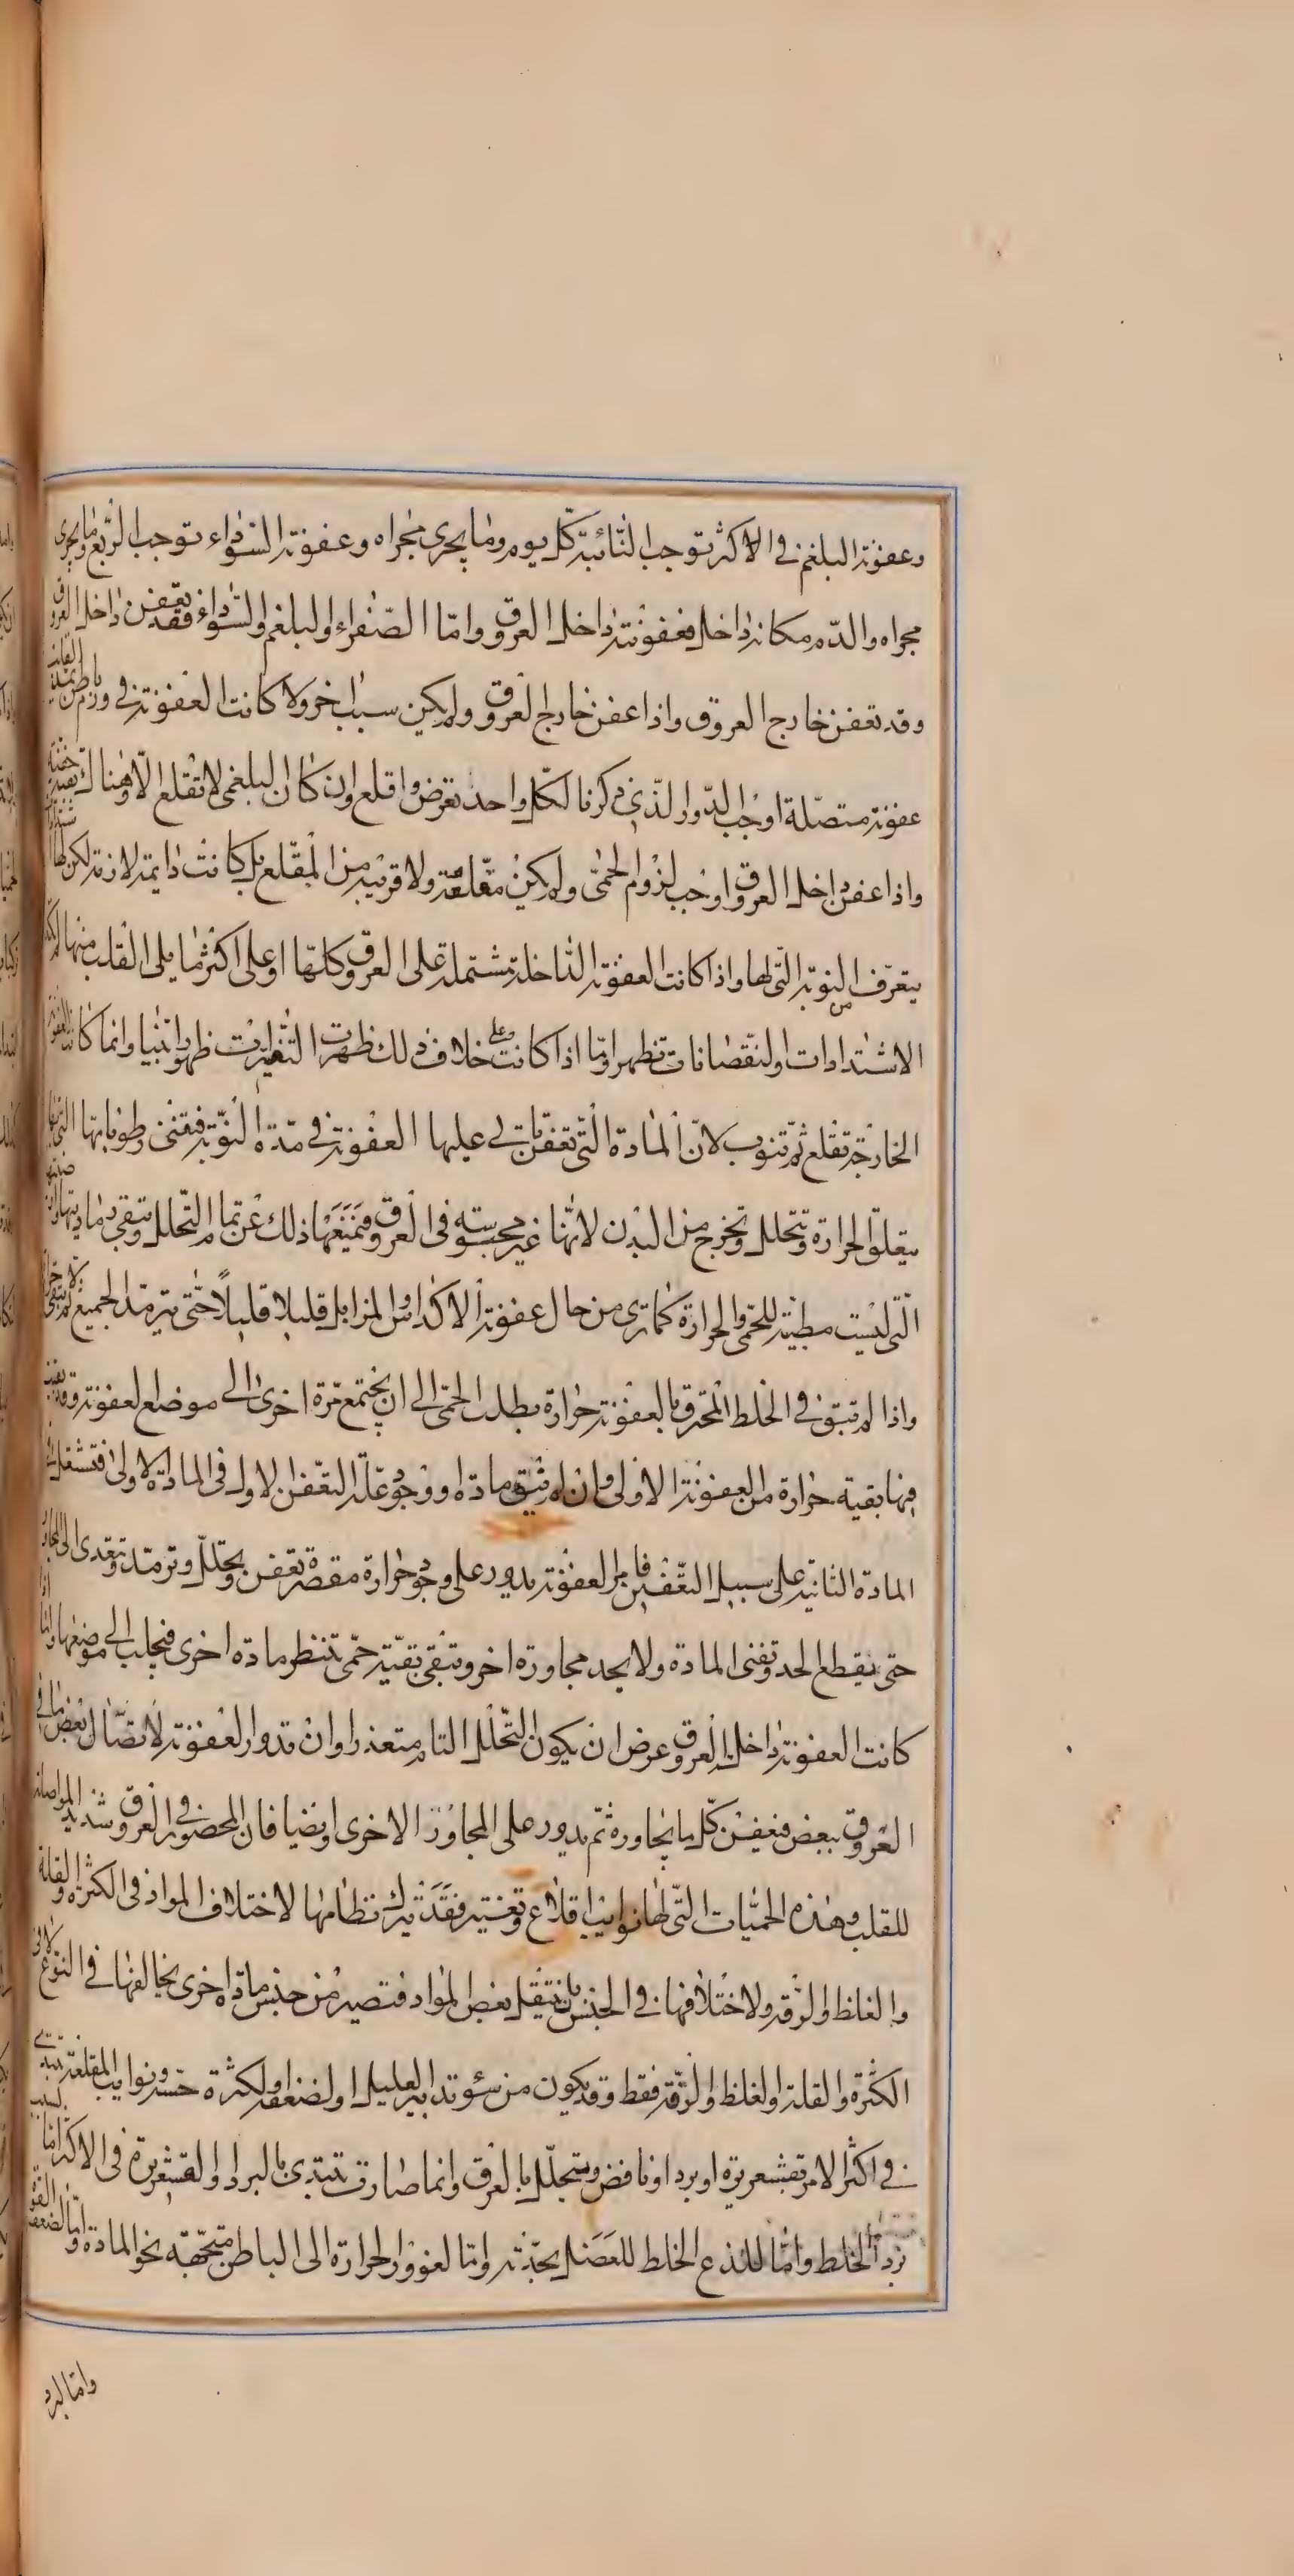 وعفونة البلغم في الاكثر توجب النائبة كل يوم وما يجري مجراه وعفونة السوداء توجب الربع وما يجري
مجراه والدم مكانه داخل فعفونته داخل العروق واما الصفراء والبلغم والسوداء فقد تعفن داخل العروق
وقد تعفن خارج العروق واذا عفن خارج العروق ولم يكن سبب اخر ولا كانت العفونة في ورم باطن
عفونة متصلة اوجب الدوار الذي ذكرنا لكل واحد تعرض واقلع وان كان البلغمي لا تقلع الا وهناك
واذا عفن داخل العروق اوجب لزوم الحمى ولم يكن مقلعة ولا قريبه من المقلع بل كانت دايمة لازمة لكن لها
يتعرف من النوبة التي لها واذا كانت العفونة الداخلة مشتملة على العروق كلها او على اكثر ما يلي القلب منها لم تكد
الاشتدادات والنقصانات تظهر واما اذا كانت على خلاف ذلك ظهرت التغيرات ظهورا بينا وانما كانت العفونة
الخارجة تقلع ثم تنوب لان المادة التي تعفن تاتي عليها العفونة في مدة النوبة فيفنى رطوباتها التي بها
يتعلق الحرارة وتتحلل وتخرج من البدن لانها غير محبوسه في العروق فتمنعها ذلك عن تمام التحلل وتبقى رماديتها وارضيتها
التي ليست مطية للحمى والحرارة كما ترى من حال عفونة الاكداس والمزابل قليلا قليلا حتى يترمد الجميع ثم لا تبقى حرارة
واذا لم تبق في الخلط المحترق بالعفونة حرارة بطلت الحمى الى ان يجتمع مرة اخرى الى موضع العفونة وقد بقيت
فيها بقية حرارة من العفونة الاولى وان لم تبق مادة او وجود علة التعفن الاول في المادة الاولى فتشتعل
المادة الثانية على سبيل التعفين فامر العفونة يدور على وجود حرارة مقصرة تعفن وتحلل وترمد وتعدى الى المجاور
حتى يقطع الحد وتفنى المادة ولا يجد مجاورة اخر وتبقى بقية حمى تنتظر مادة اخرى فيجلب الى موضعها واما اذا
كانت العفونة داخل العروق عرض ان يكون التحلل التام متعذرا وان تدور العفونة لاتصال بعض ما في
العروق ببعض فيعفن كل ما يجاوره ثم يدور على المجاور الاخرى وايضا فان المحصور في العروق شديد المواصلة
للقلب وهذه الحميات التي لها نوايب اقلاع وتفتير فقد تترك نظامها لاختلاف المواد في الكثرة والقلة
والغلظ والرقة ولاختلافها في الجنس بان ينتقل بعض المواد فتصير من جنس مادة اخرى يخالفها في النوع لا في
الكثرة والقلة والغلظ والرقة فقط وقد يكون من سوء تدابير العليل او لضعفه ولكثرة حسه ونوايب المقلعة تبتدي
في اكثر الامر بقشعريرة او برد او نافض ويتحلل بالعرق وانما صارت تبتدي بالبرد والقشعريرة في الاكثر اما بسبب
برد الخلط واما للذع الخلط للعضل بحدته واما لغوور الحرارة الى الباطن متجهة نحو المادة واما لضعف القوة
واما لبرد